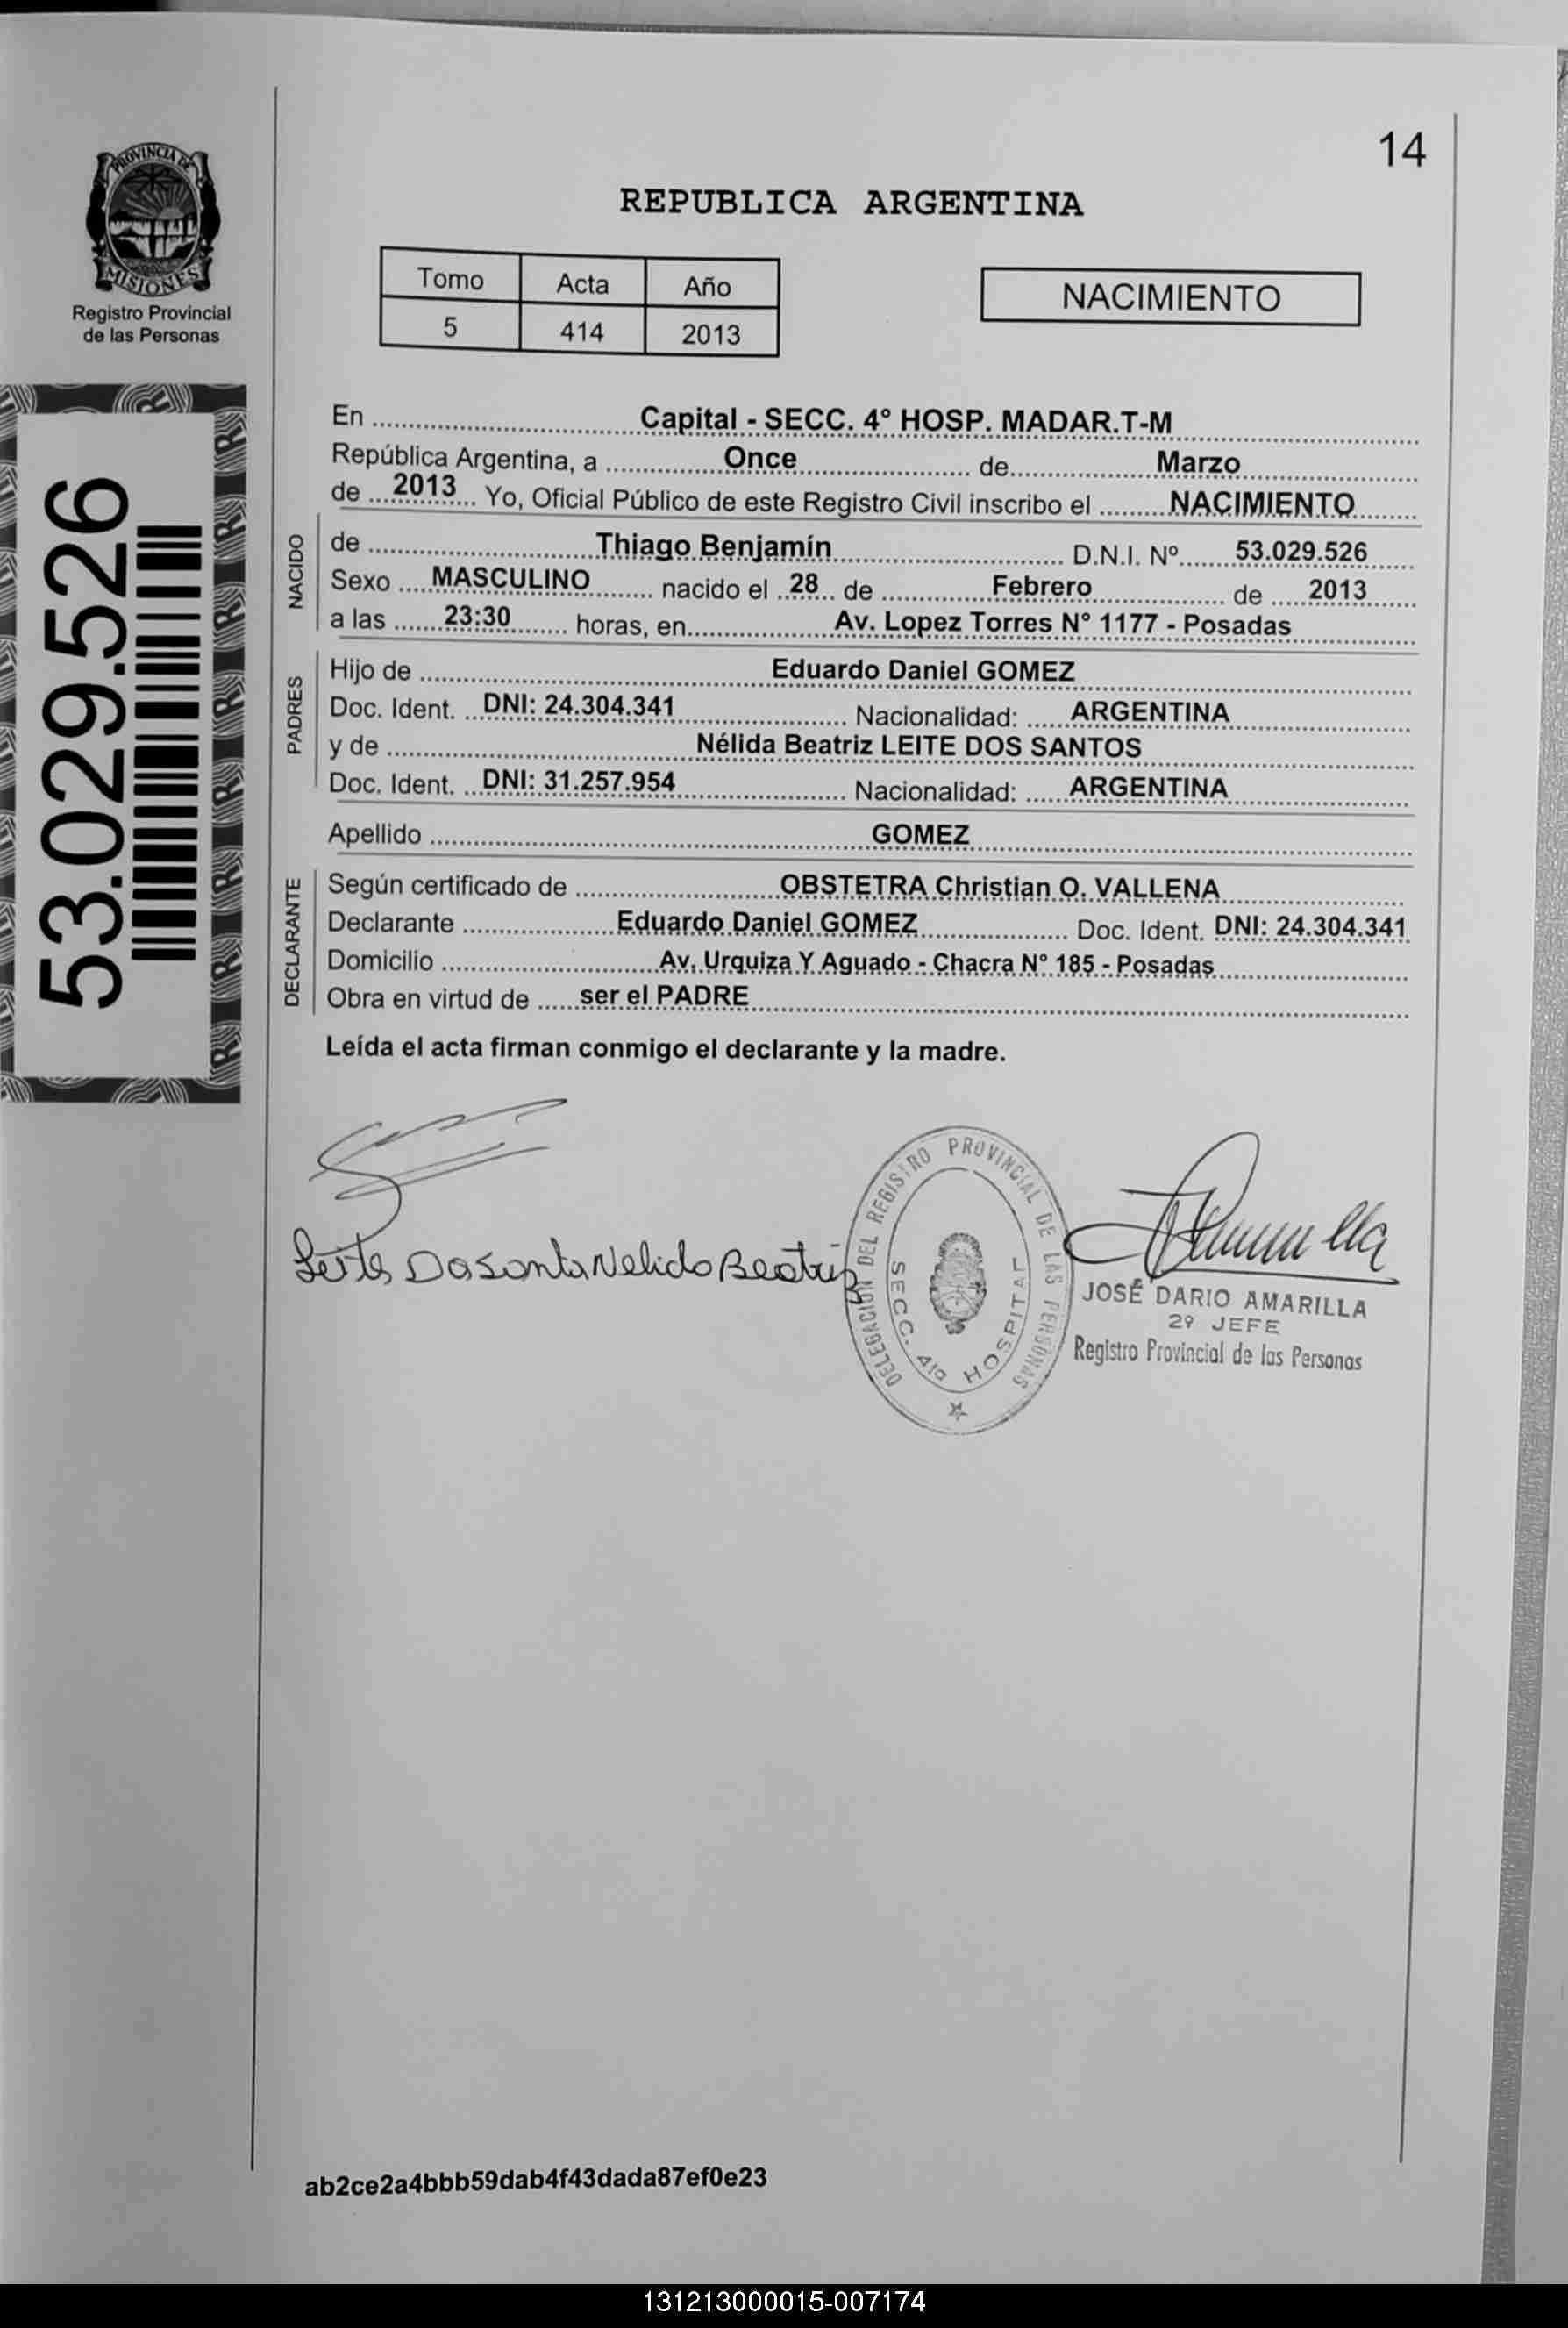 14
PROVINCIA DE
MISIONES
Registro Provincial
de las Personas
53.029.526
REPUBLICA ARGENTINA
Tomo Acta Año
5 414 2013
NACIMIENTO
En Capital - SECC. 4° HOSP. MADAR.T-M
República Argentina, a Once de Marzo
de 2013 Yo, Oficial Público de este Registro Civil inscribo el NACIMIENTO
NACIDO
de Thiago Benjamín D.N.I. Nº 53.029.526
Sexo MASCULINO nacido el 28 de Febrero de 2013
a las 23:30 horas, en Av. Lopez Torres N° 1177 - Posadas
PADRES
Hijo de Eduardo Daniel GOMEZ
Doc. Ident. DNI: 24.304.341 Nacionalidad: ARGENTINA
y de Nélida Beatriz LEITE DOS SANTOS
Doc. Ident. DNI: 31.257.954 Nacionalidad: ARGENTINA
Apellido GOMEZ
DECLARANTE
Según certificado de OBSTETRA Christian O. VALLENA
Declarante Eduardo Daniel GOMEZ Doc. Ident. DNI: 24.304.341
Domicilio Av. Urquiza Y Aguado - Chacra N° 185 - Posadas
Obra en virtud de ser el PADRE
Leída el acta firman conmigo el declarante y la madre.
Beatriz
DELEGACION DEL REGISTRO PROVINCIAL DE LAS PERSONAS
SECC. 4ta HOSPITAL
JOSÉ DARIO AMARILLA
2º JEFE
Registro Provincial de las Personas
ab2ce2a4bbb59dab4f43dada87ef0e23
131213000015-007174